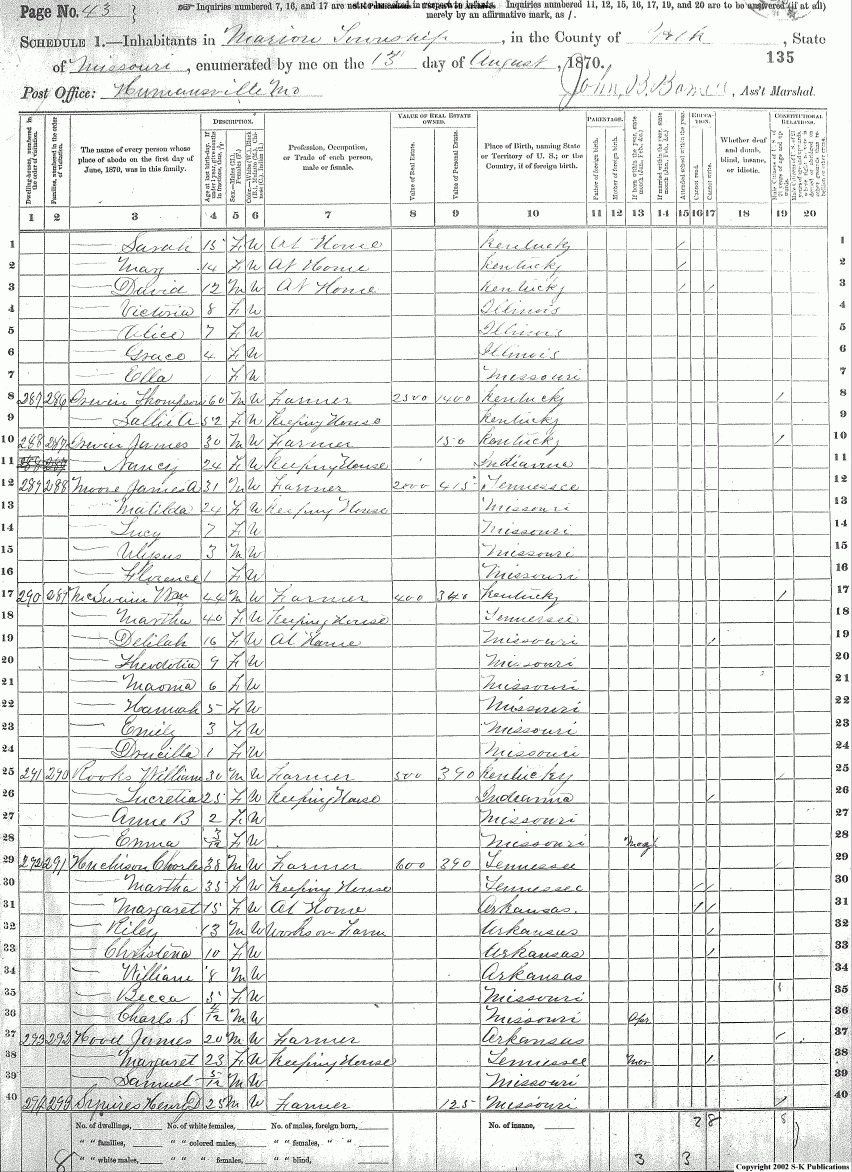 Page No. 43
Inquiries numbered 7, 16, and 17 are not to be asked in respect to infants. Inquiries numbered 11, 12, 15, 16, 17, 19, and 20 are to be answered (if at all) merely by an affirmative mark, as /.
SCHEDULE 1.—Inhabitants in Marion Township, in the County of Polk, State
of Missouri, enumerated by me on the 13 day of August, 1870. 135
Post Office: Humansville Mo John B. , Ass't Marshal.
DESCRIPTION. VALUE OF REAL ESTATE OWNED. PARENTAGE. EDUCATION. CONSTITUTIONAL RELATIONS.
Dwelling-houses, numbered in the order of visitation. Families, numbered in the order of visitation. The name of every person whose place of abode on the first day of June, 1870, was in this family. Profession, Occupation, or Trade of each person, male or female. Value of Real Estate. Value of Personal Estate. Place of Birth, naming State or Territory of U. S.; or the Country, if of foreign birth. Father of foreign birth. Mother of foreign birth. Attended school within the year. Cannot read. Cannot write. Whether deaf and dumb, blind, insane, or idiotic.
1 2 3 4 5 6 7 8 9 10 11 12 13 14 15 16 17 18 19 20
1 — Sarah 15 F W At Home Kentucky / 1
2 — May 14 F W At Home Kentucky / 2
3 — David 12 M W At Home Kentucky / / 3
4 — Victoria 8 F W Illinois 4
5 — Alice 7 F W Illinois 5
6 — Grace 4 F W Illinois 6
7 — Ella 1 F W Missouri 7
8 287 286 Thompson 60 M W Farmer 2500 1400 Kentucky / 8
9 — Sallie A 52 F W Keeping House Kentucky 9
10 288 287 James 30 M W Farmer 150 Kentucky / 10
11 — Nancy 24 F W Keeping House Indianna 11
12 289 288 Moore James A 31 M W Farmer 2000 415 Tennessee / 12
13 — Matilda 24 F W Keeping House Missouri 13
14 — Lucy 7 F W Missouri 14
15 — Ulysus 3 M W Missouri 15
16 — Florence 1 F W Missouri 16
17 290 289 McSwain Wm 44 M W Farmer 400 340 Kentucky / 17
18 — Martha 40 F W Keeping House Tennessee 18
19 — Delilah 16 F W At Home Missouri / 19
20 — Theodotia 9 F W Missouri 20
21 — Maoma 6 F W Missouri 21
22 — Hannah 5 F W Missouri 22
23 — Emily 3 F W Missouri 23
24 — Drucilla 1 F W Missouri 24
25 291 290 Rooks William 30 M W Farmer 500 390 Kentucky / 25
26 — Lucretia 25 F W Keeping House Indeanna / 26
27 — Anne B 2 F W Missouri 27
28 — Emma 3/12 F W Missouri May 28
29 292 291 Hutchison Charles 38 M W Farmer 600 390 Tennessee / 29
30 — Martha 35 F W Keeping House Tennessee / / 30
31 — Margaret 15 F W At Home Arkansas. / / 31
32 — Riley 13 M W Works on Farm Arkansas / 32
33 — Christena 10 F W Arkansas / 33
34 — William 8 M W Arkansas 34
35 — Becca 5 F W Missouri 35
36 — Charls S 4/12 M W Missouri Apr 36
37 293 292 Hood James 20 M W Farmer Arkansas / 37
38 — Margaret 23 F W Keeping House Tennessee Mar / 38
39 — Samuel 5/12 M W Missouri 39
40 294 293 Squires Henry D 25 M W Farmer 125 Missouri / 40
No. of dwellings, No. of white females, No. of males, foreign born, No. of insane, 2 8 8
" " families, " " colored males, " " females, " "
8 " " white males, " " " females, " " blind, 3 3
Copyright 2002 S-K Publications